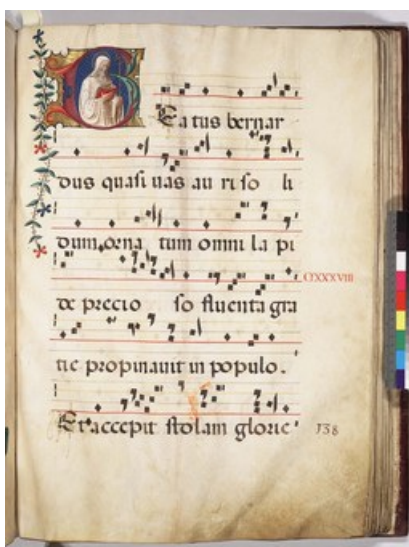 Eatus bernar
dus quasi uas au ri so li
dum, orna tum omni la pi
de precio so fluenta gra
CXXXVIII
tie propinauit in populo.
Et accepit stolam glorie
138